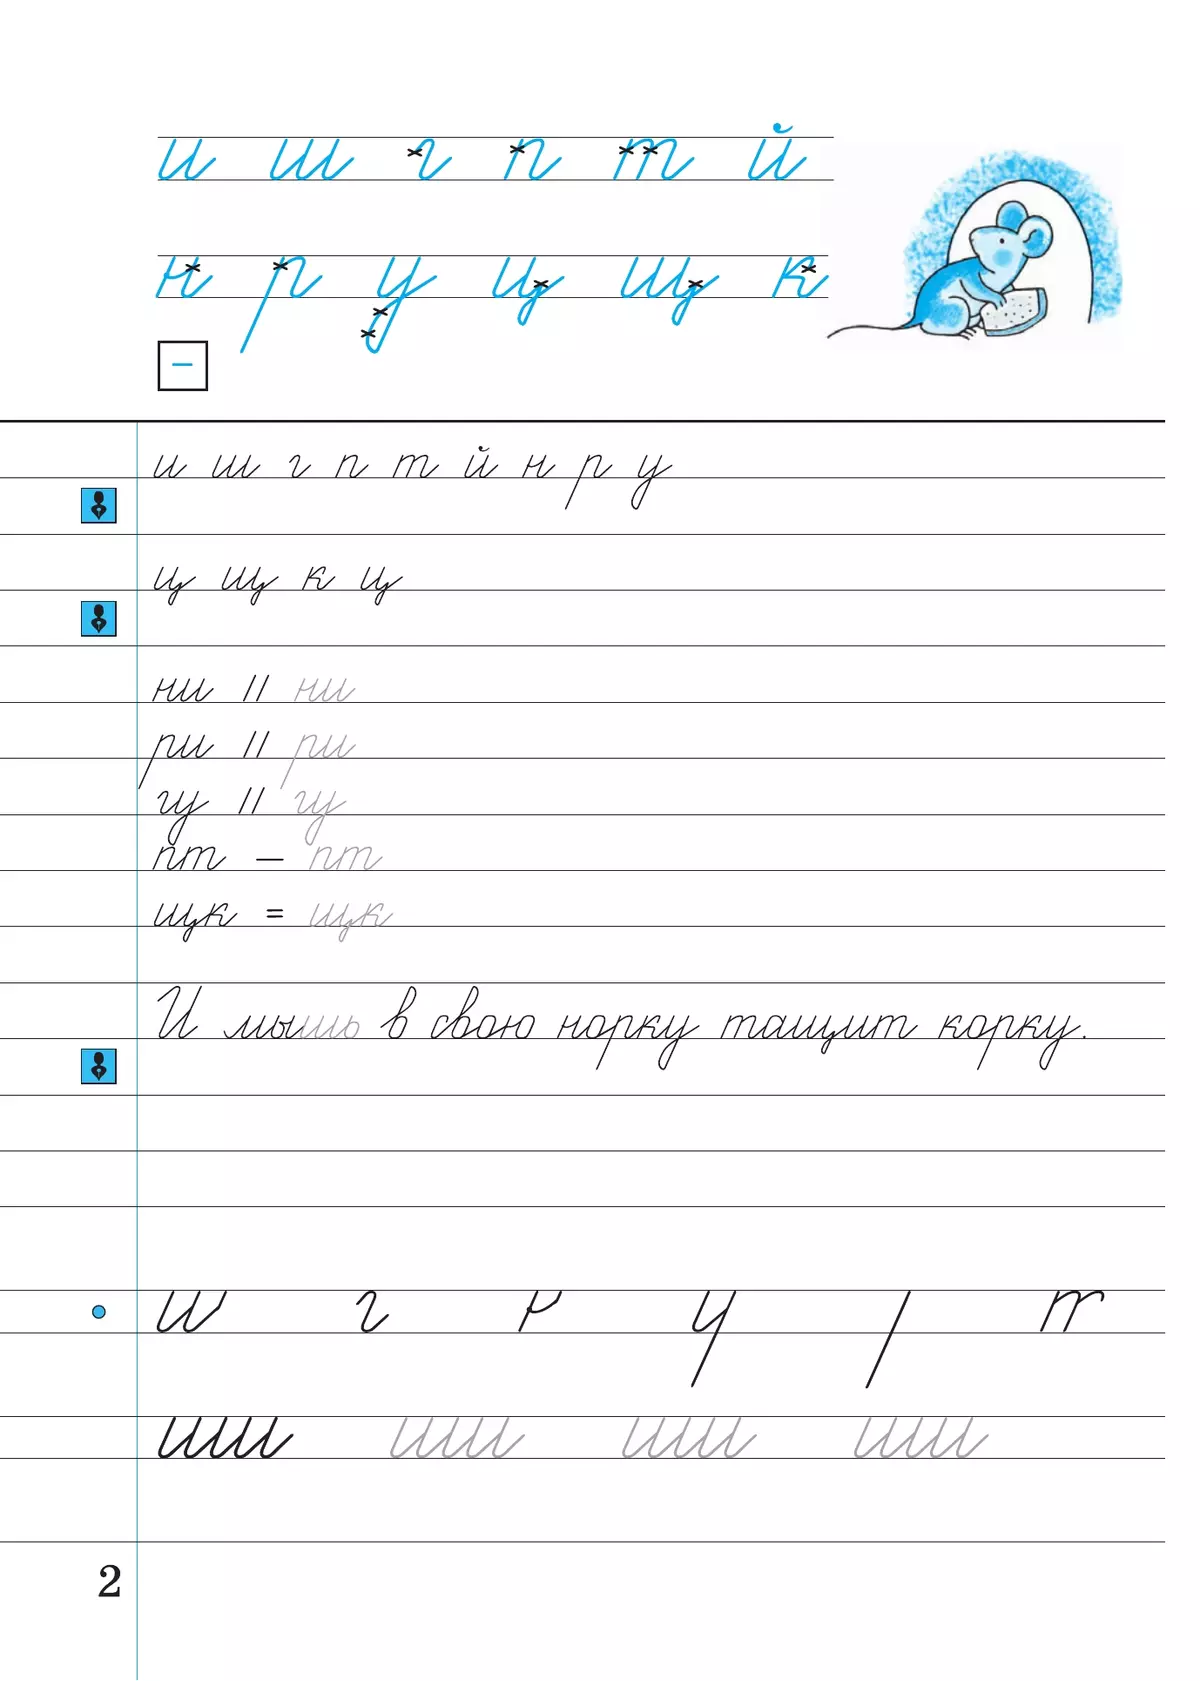 и ш г п т й
н р у ц щ к
–
и ш г п т й н р у
ц щ к ц
ни // ни
ри // ри
гу // гу
пт – пт
щк = щк
И мышь в свою норку тащит корку.
2